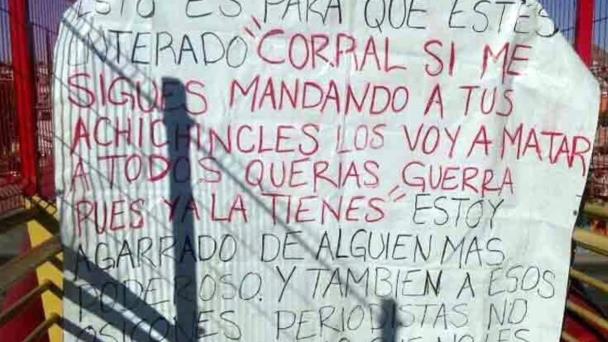 ESTO ES PARA QUE ESTES
ENTERADO "CORRAL SI ME
SIGUES MANDANDO A TUS
ACHICHINCLES LOS VOY A MATAR
A TODOS QUERIAS GUERRA
PUES YA LA TIENES" ESTOY
AGARRADO DE ALGUIEN MAS
PODEROSO. Y TAMBIEN A ESOS
OSICONES PERIODISTAS NO
QUE NO LES